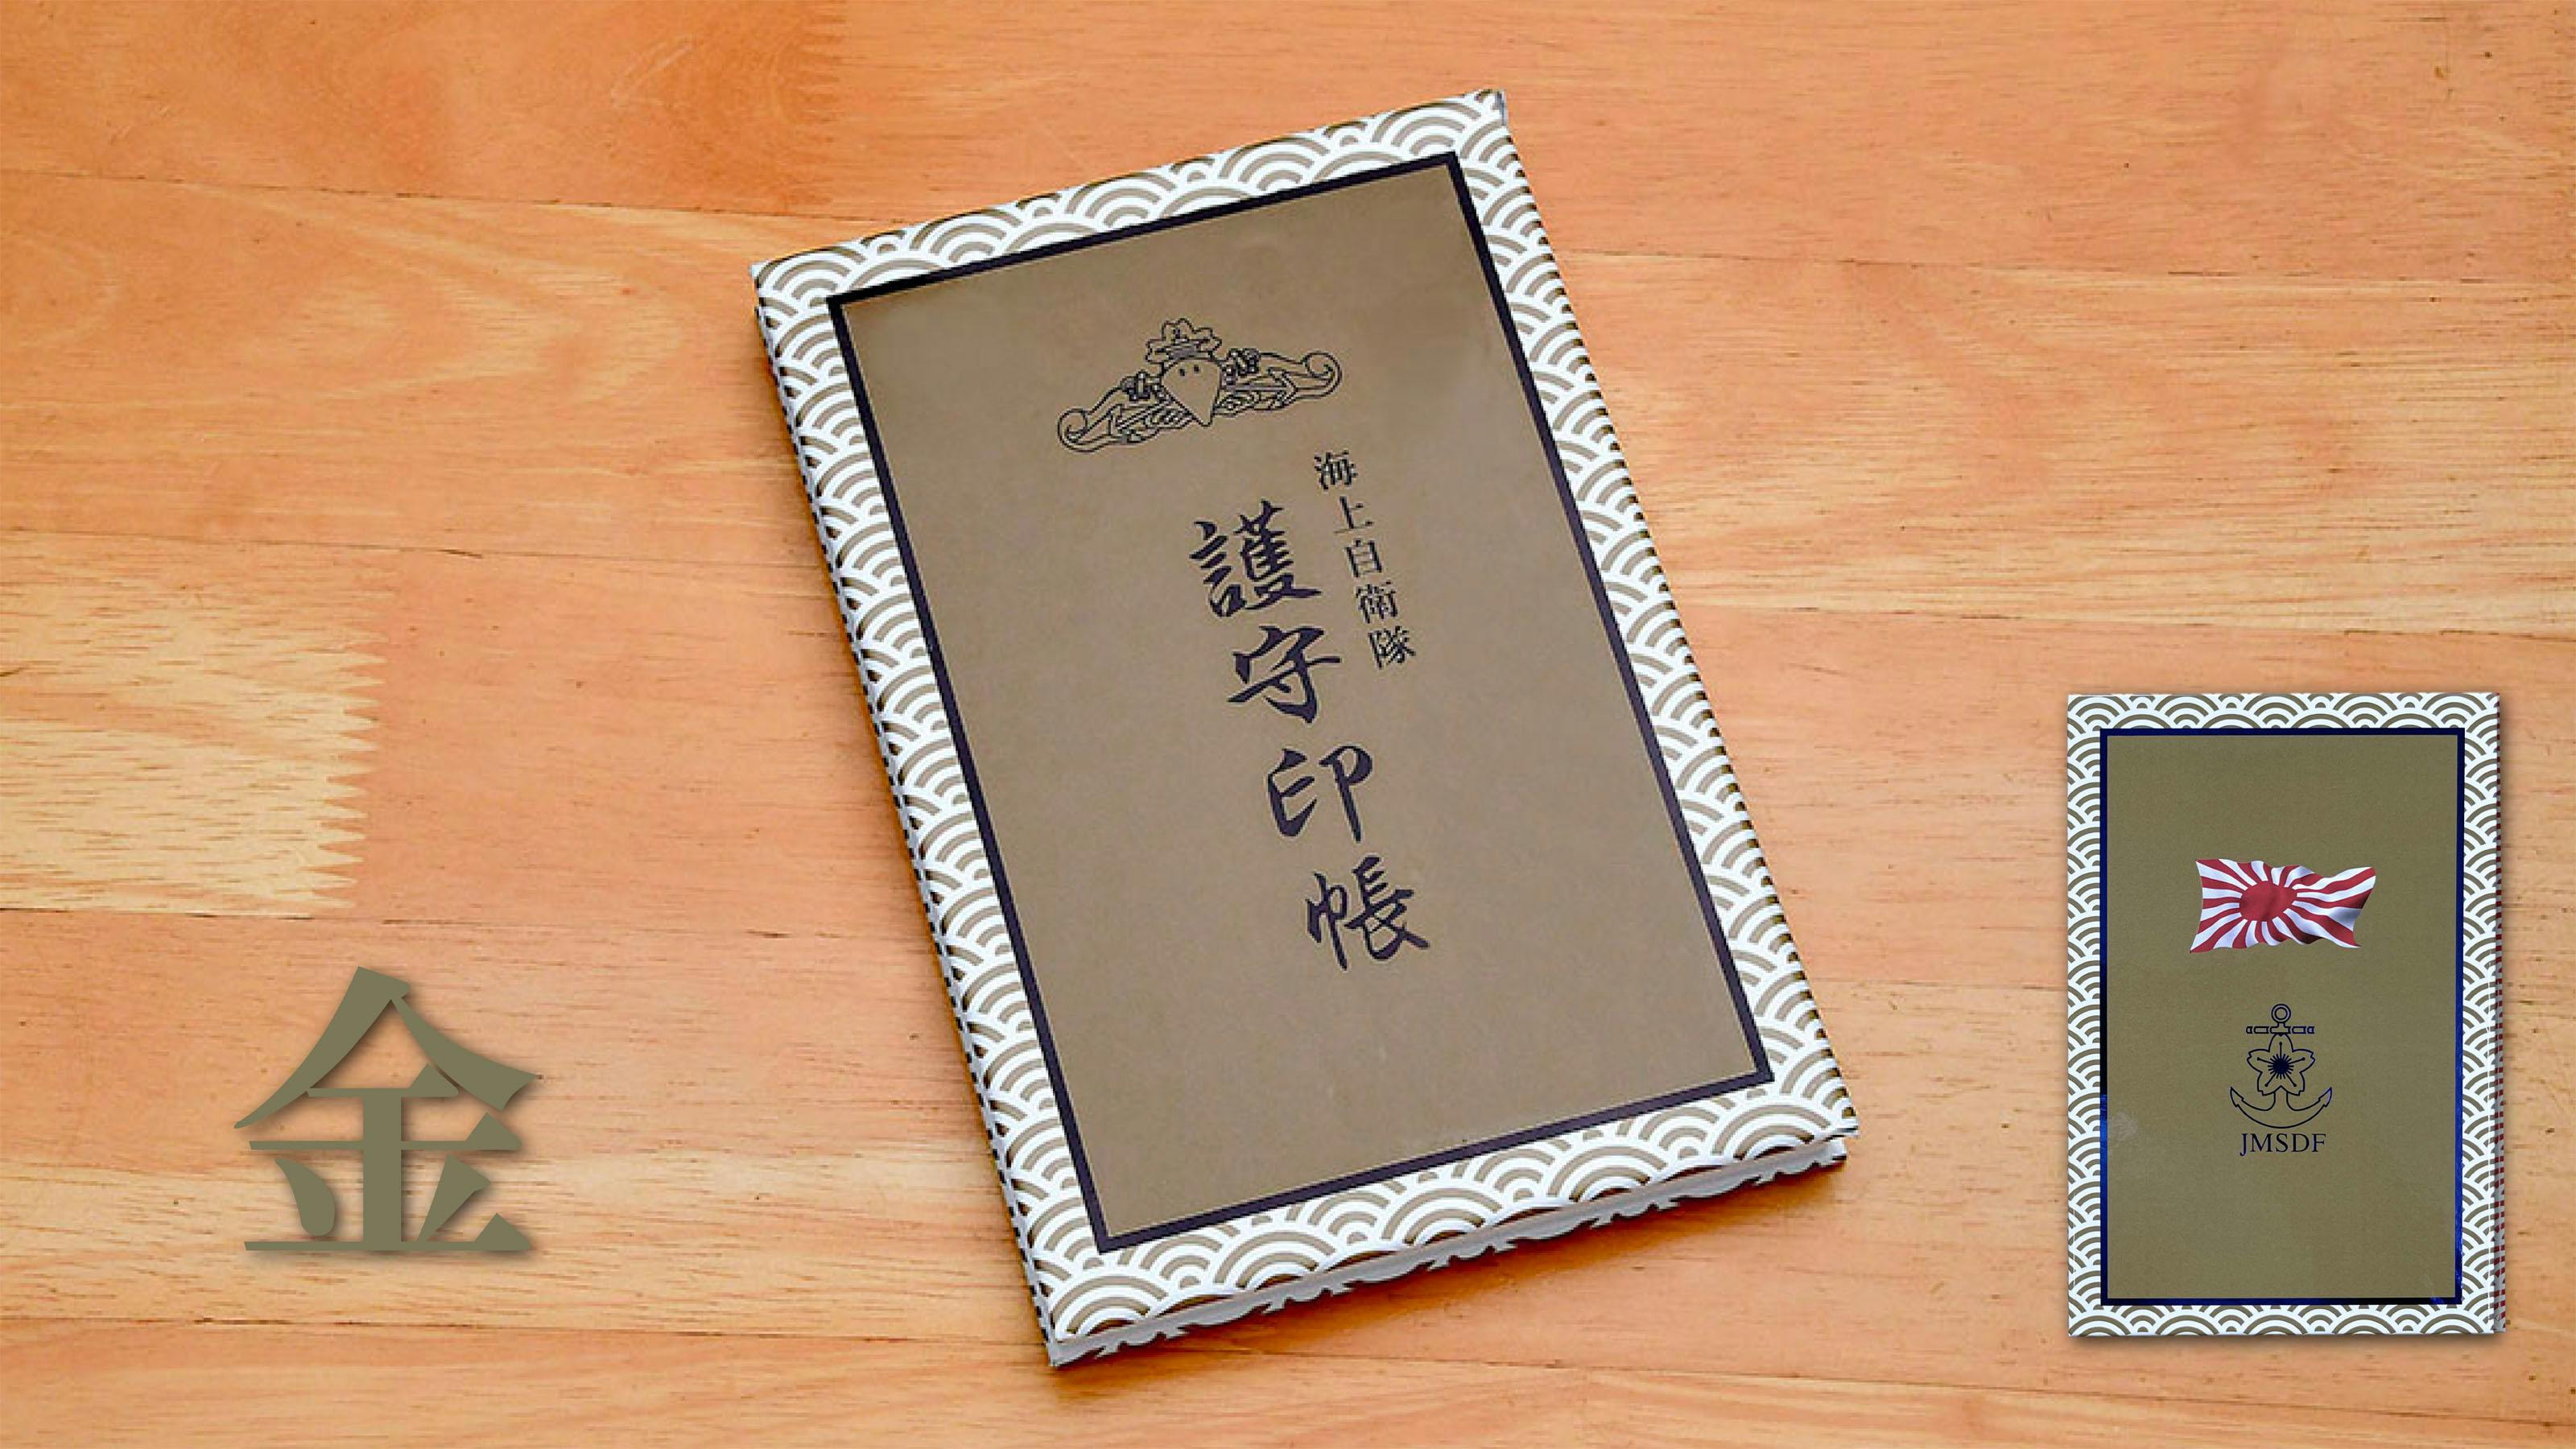 海上自衛隊
護守印帳
金
JMSDF